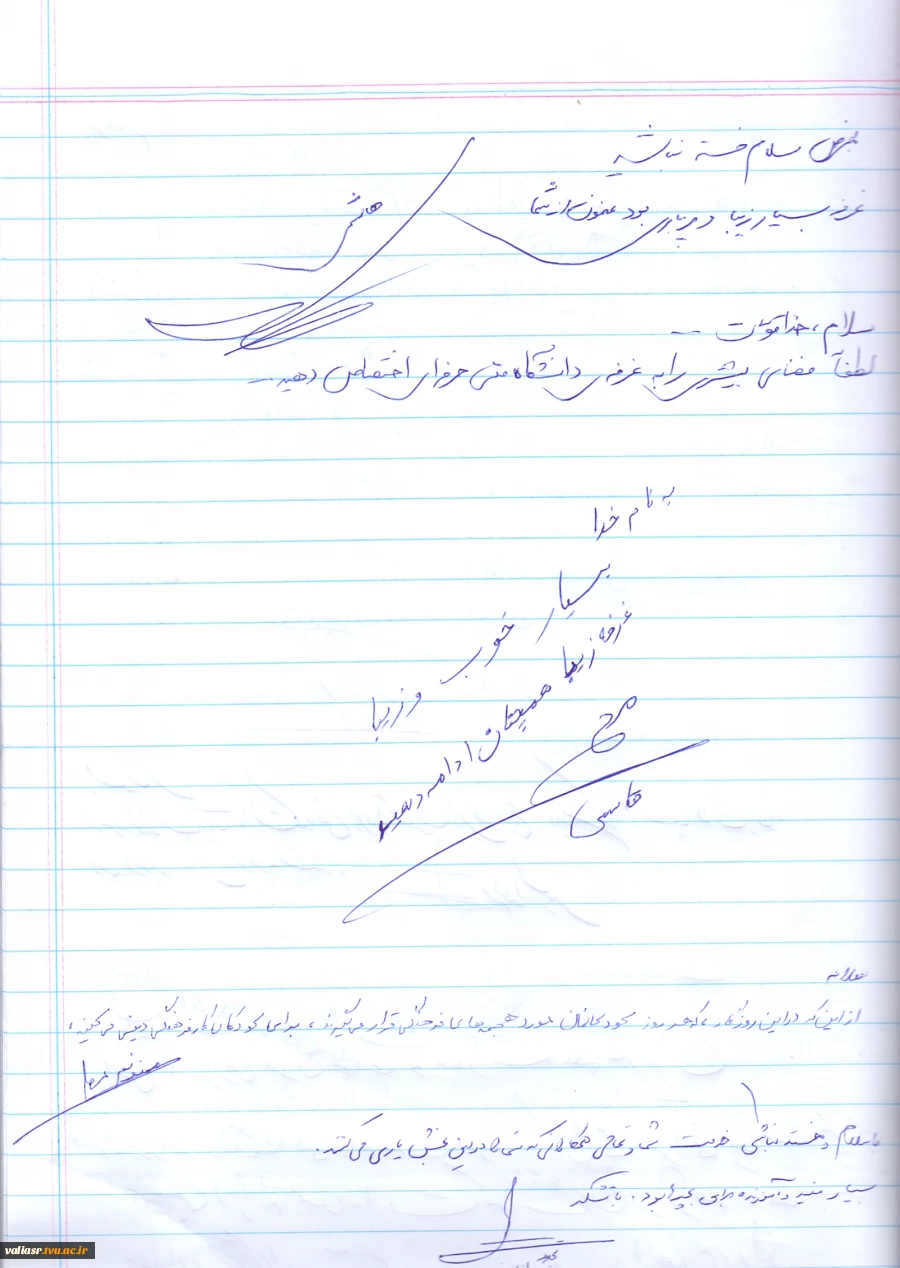 بعرض سلام خسته نباشید
غرفه بسیار زیبا و پرباری بود ممنون از شما
هاشمی
سلام، خداقوت ...
لطفاً فضای بیشتری را به غرفه‌ی دانشگاه فنی حرفه‌ای اختصاص دهید...
به نام خدا
بسیار خوب و زیبا
غرفه زیبا همچنان ادامه دهید
قاسمی
از این که در این روزگار، که هر روز کودکانمان مورد هجمه‌های فرهنگی قرار می‌گیرند، برای کودکان کار فرهنگی دینی می‌کنید،
ممنونیم
با سلام و خسته نباشی خدمت شما و تمامی همکارانی که شما را در این بخش یاری می‌کنند.
بسیار مفید و آموزنده برای بچه‌ها بود. با تشکر
valiasr.tvu.ac.ir